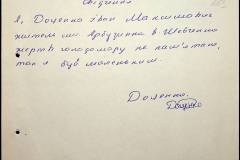 Свідчення
Я, Доценко Іван Максимович
житель смт. Арбузинка в. Шевченка
жертв голодомору не пам'ятаю,
так я був маленьким.
Доценко.
Доценко